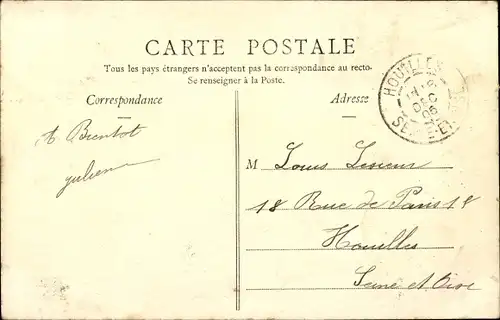 CARTE POSTALE
Tous les pays étrangers n'acceptent pas la correspondance au recto-
Se renseigner à la Poste.
Correspondance
Adresse
A Bientot
Julien
M Louis
18 Rue de Paris 18
Houilles
Seine et Oise
HOUILLES
SEINE-ET-